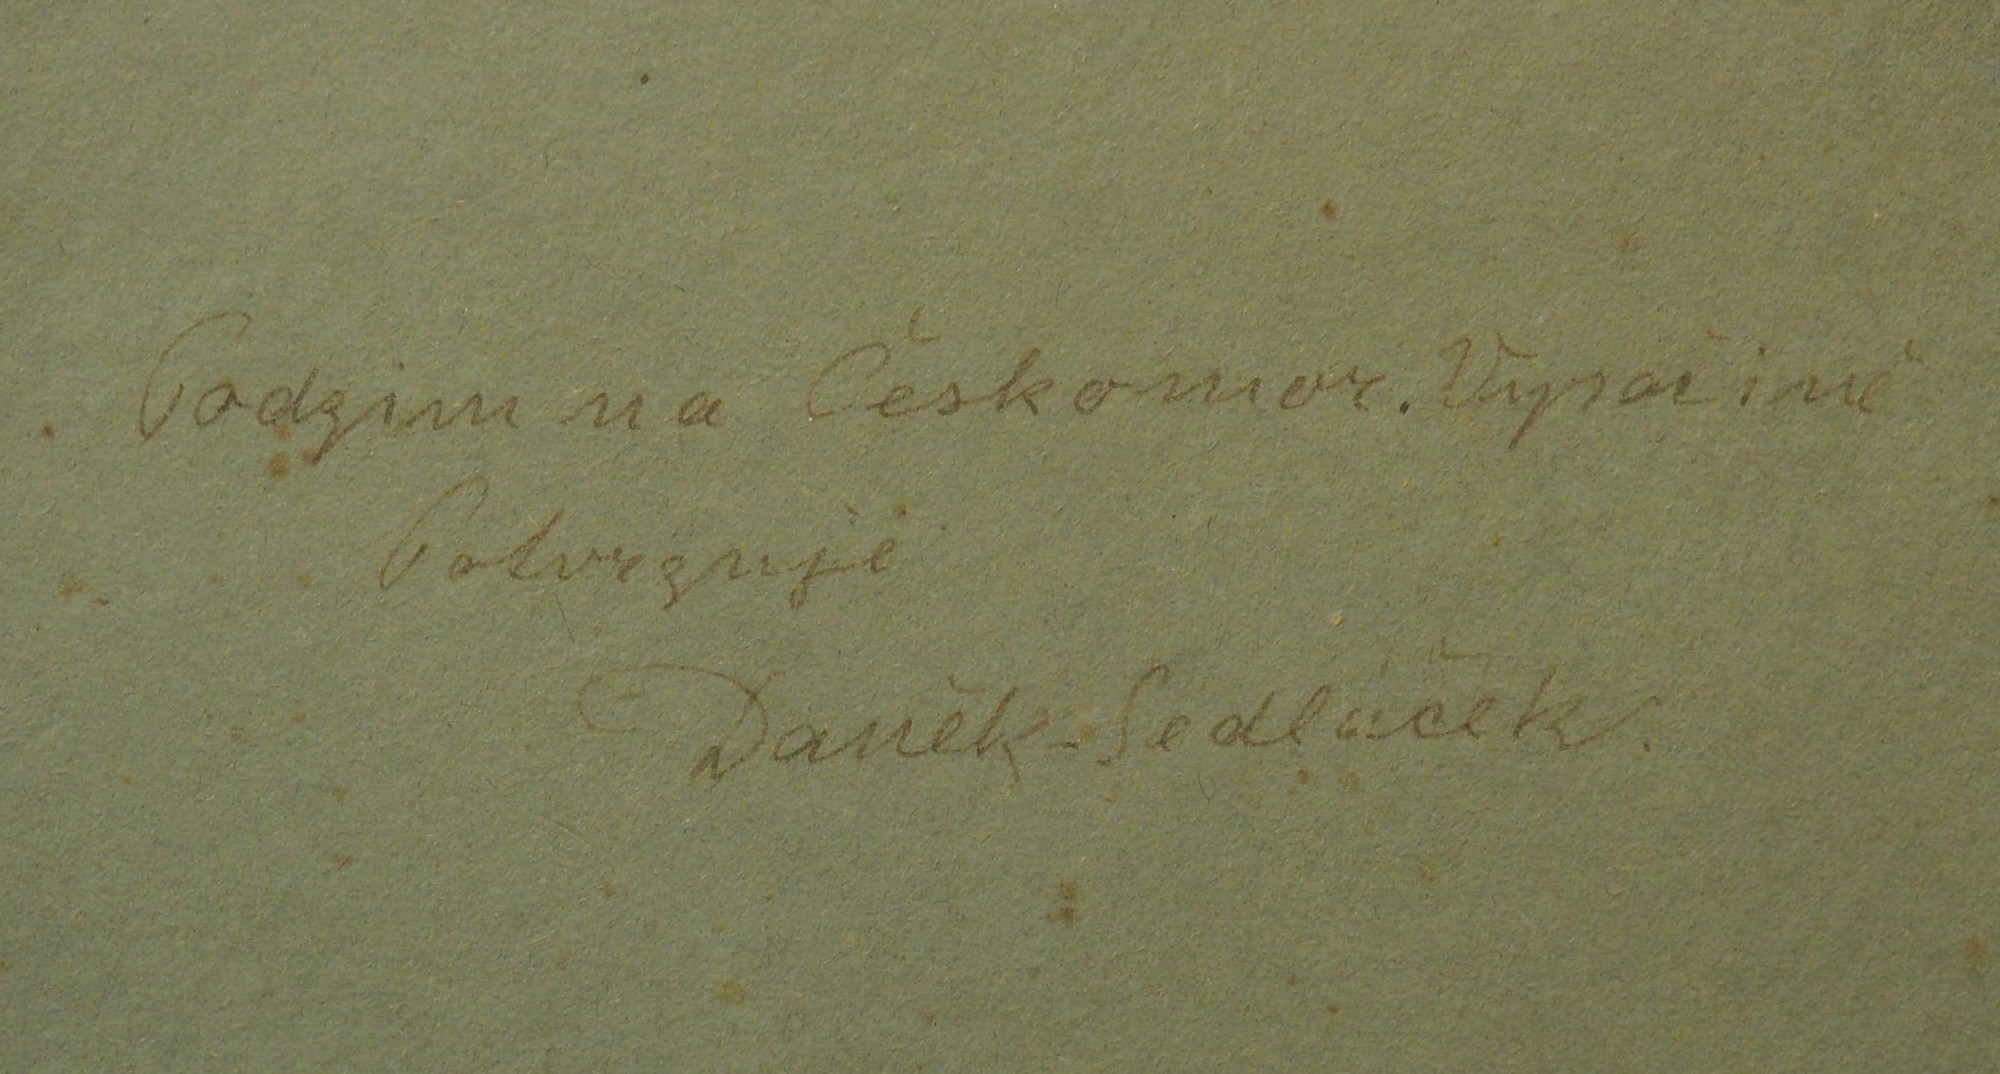 Podzim na Českomor. Vysočině
Potvrzuje
Daněk-Sedláček.